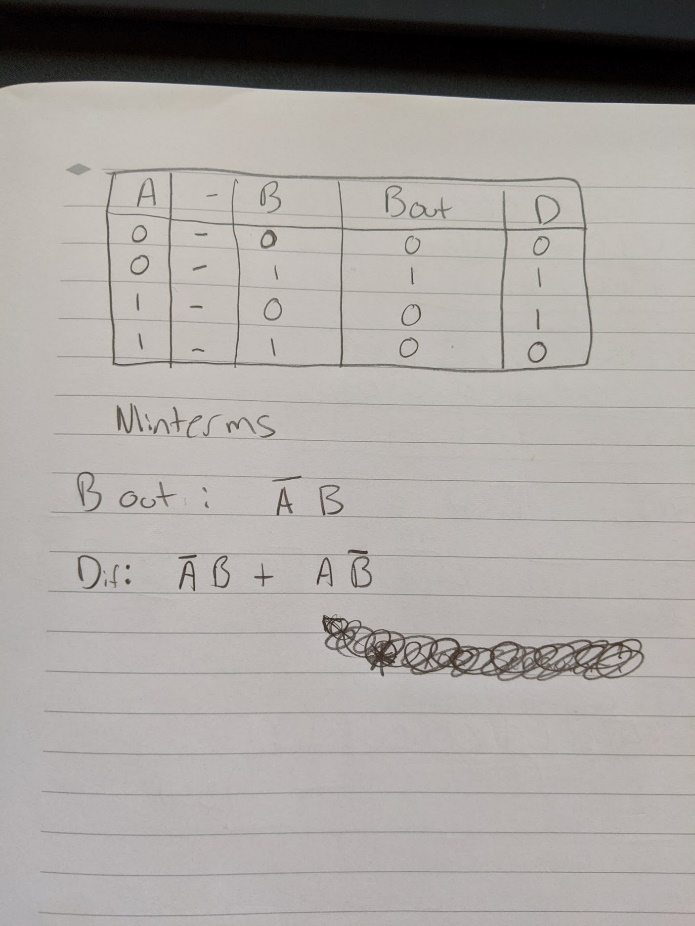 A - B Bout D
0 - 0 0 0
0 - 1 1 1
1 - 0 0 1
1 - 1 0 0
Minterms
Bout: A̅ B
Dif: A̅ B + A B̅